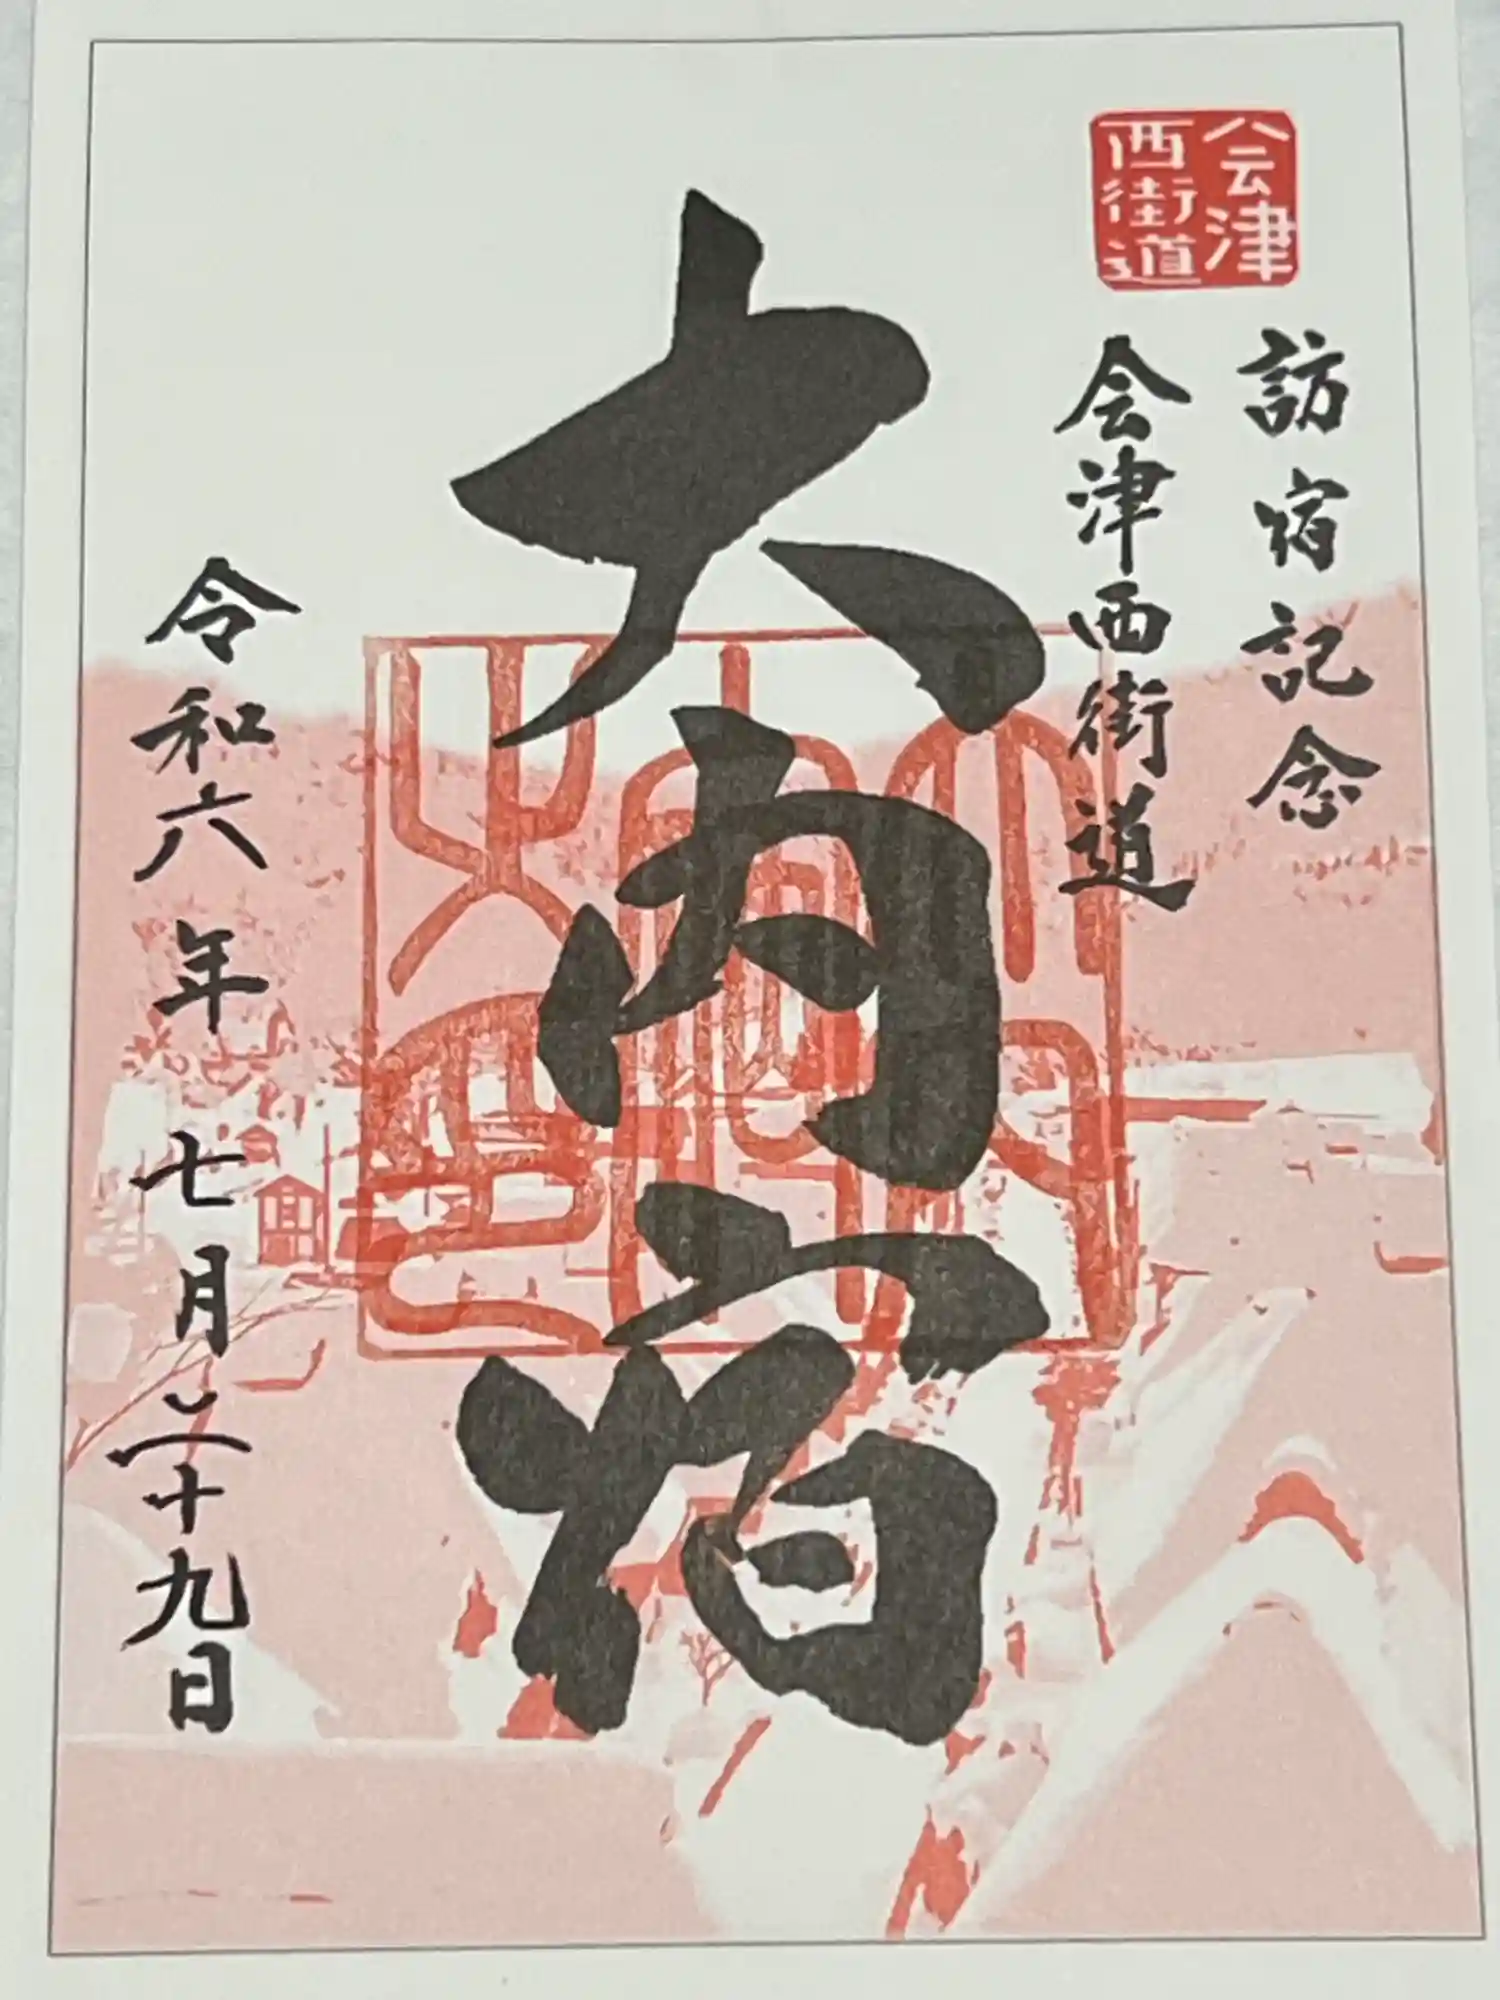 会津
西街道
訪宿記念
会津西街道
大内宿
令和六年七月二十九日